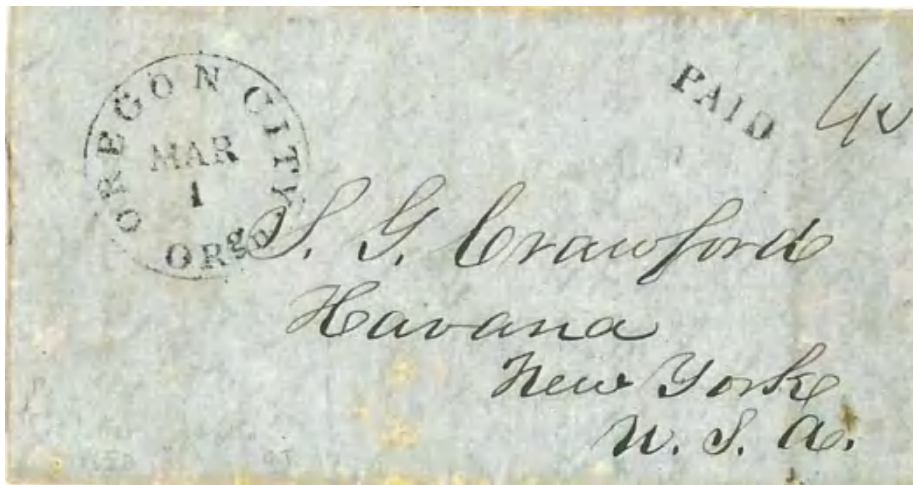 OREGON CITY
MAR
1
ORgn
PAID
40
S. G. Crawford
Havana
New York
U. S. A.